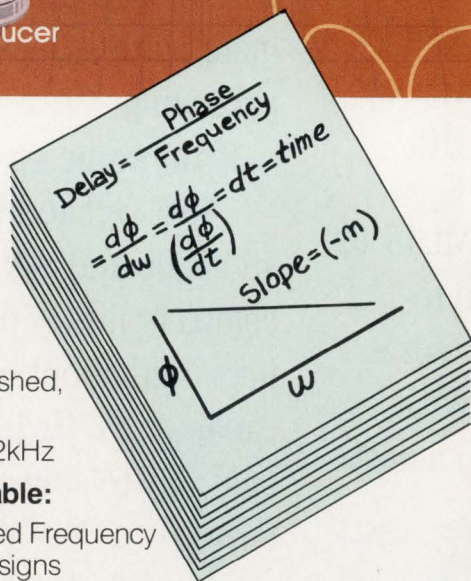 ucer
Delay = Phase / Frequency
= dϕ/dw = dϕ/(dϕ/dt) = dt = time
Slope = (-m)
ϕ
w
shed,
2kHz
able:
ed Frequency
signs